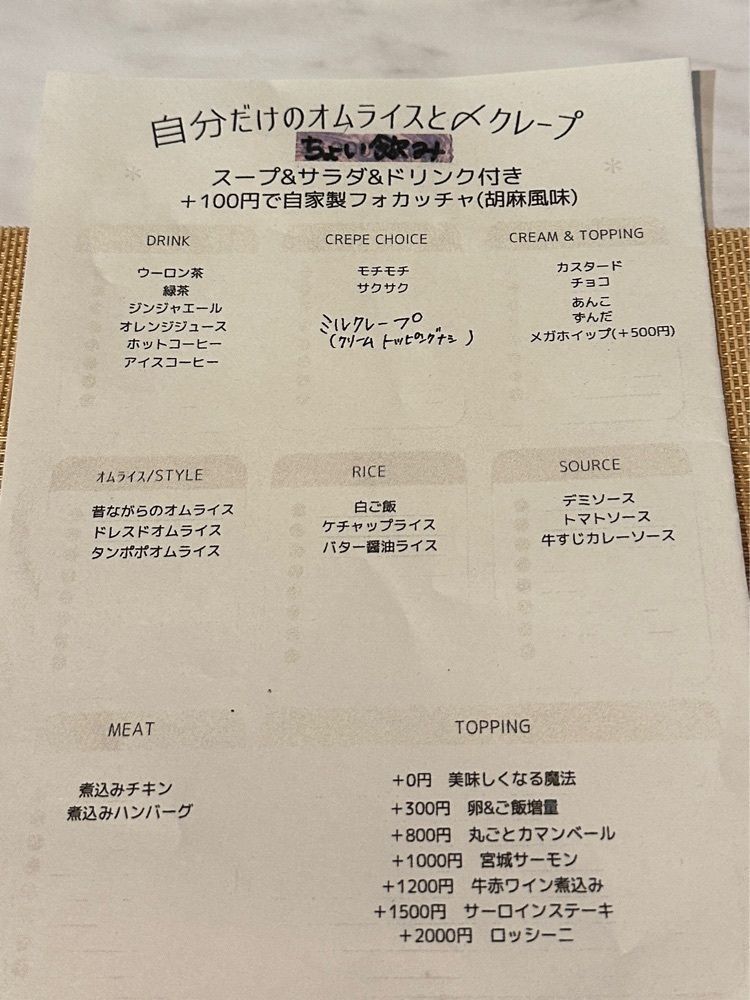 自分だけのオムライスと〆クレープ
ちょい飲み
スープ&サラダ&ドリンク付き
+100円で自家製フォカッチャ(胡麻風味)
DRINK
ウーロン茶
緑茶
ジンジャエール
オレンジジュース
ホットコーヒー
アイスコーヒー
CREPE CHOICE
モチモチ
サクサク
ミルクレープ
(クリーム トッピングナシ)
CREAM & TOPPING
カスタード
チョコ
あんこ
ずんだ
メガホイップ(+500円)
オムライス/STYLE
昔ながらのオムライス
ドレスドオムライス
タンポポオムライス
RICE
白ご飯
ケチャップライス
バター醤油ライス
SOURCE
デミソース
トマトソース
牛すじカレーソース
MEAT
煮込みチキン
煮込みハンバーグ
TOPPING
+0円 美味しくなる魔法
+300円 卵&ご飯増量
+800円 丸ごとカマンベール
+1000円 宮城サーモン
+1200円 牛赤ワイン煮込み
+1500円 サーロインステーキ
+2000円 ロッシーニ